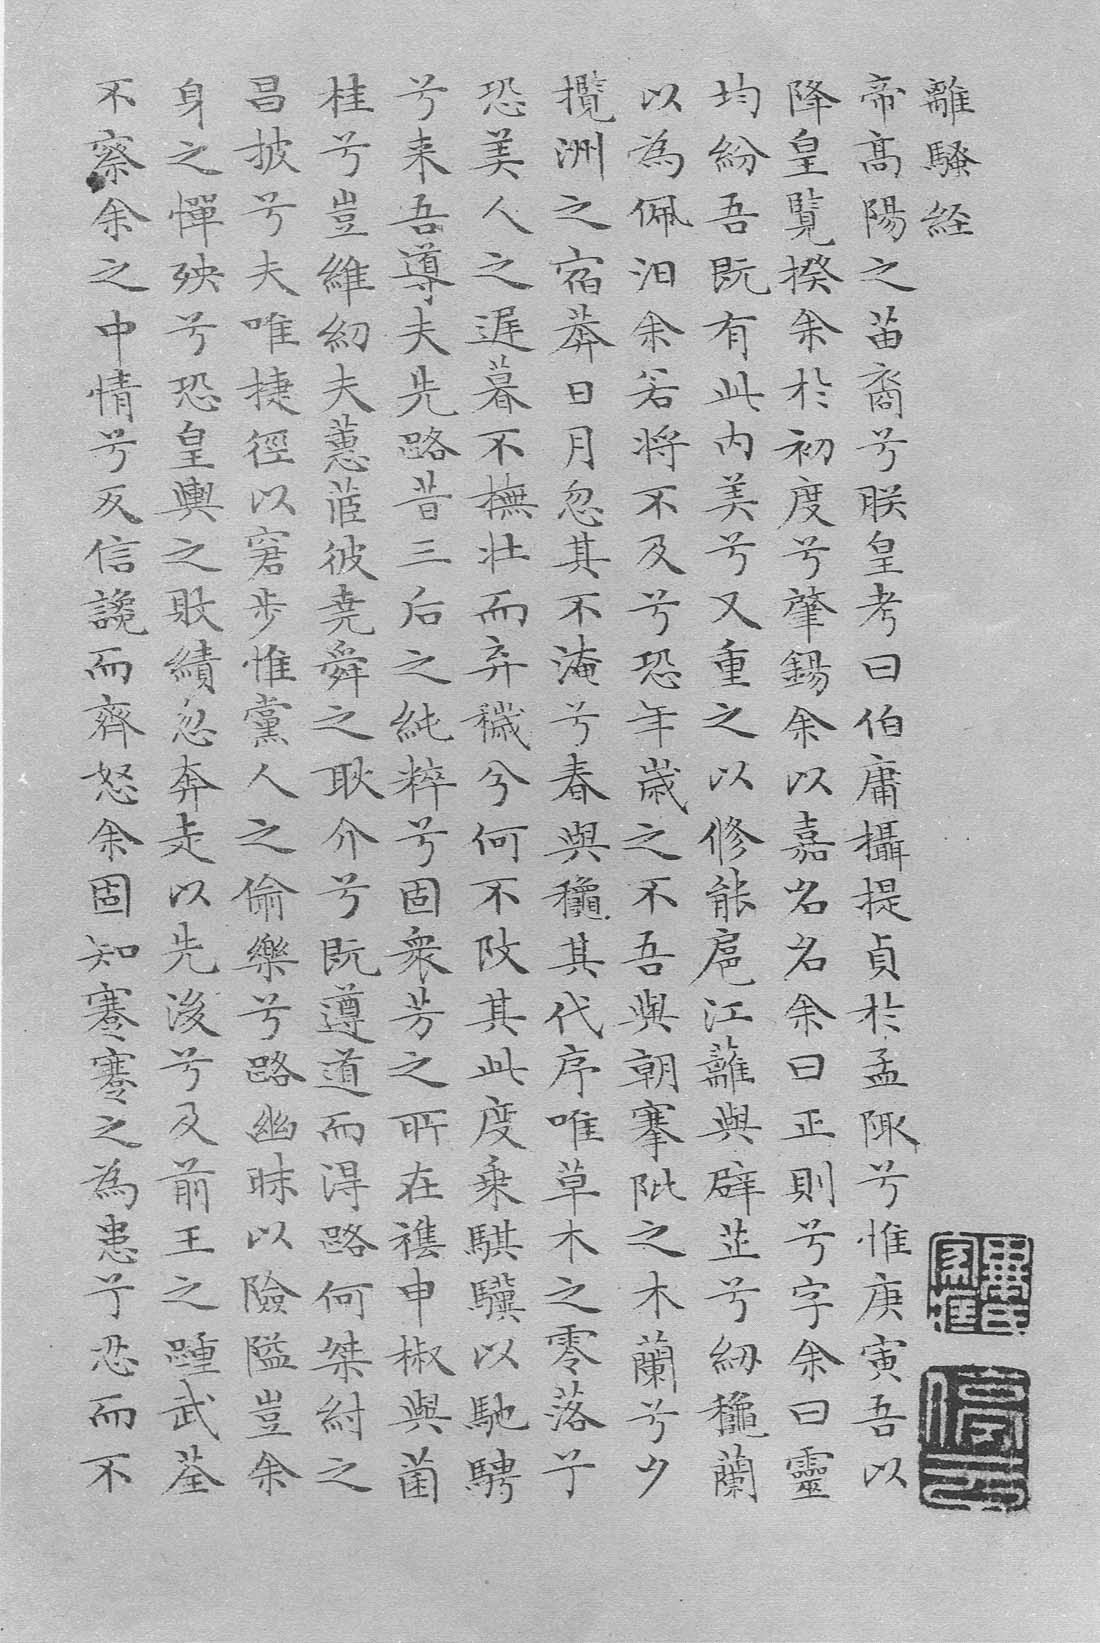 離騷経
帝髙陽之苗裔兮朕皇考曰伯庸攝提貞於孟陬兮惟庚寅吾以
降皇覧揆余於初度兮肇錫余以嘉名名余曰正則兮字余曰靈
均紛吾既有此内美兮又重之以修能扈江離與辟芷兮紉穐蘭
以為佩汨余若将不及兮恐年歳之不吾與朝搴阰之木蘭兮夕
攬洲之宿莽日月忽其不淹兮春與穐其代序唯草木之零落兮
恐美人之遅暮不撫壮而弃穢兮何不改其此度乗騏驥以馳騁
兮来吾導夫先路昔三后之純粹兮固衆芳之所在襍申椒與菌
桂兮豈維紉夫蕙茝彼堯舜之耿介兮既遵道而得路何桀紂之
昌披兮夫唯捷徑以窘步惟黨人之偷樂兮路幽昧以險隘豈余
身之憚殃兮恐皇輿之敗績忽奔走以先後兮及前王之踵武荃
不察余之中情兮反信讒而齊怒余固知謇謇之為患兮忍而不